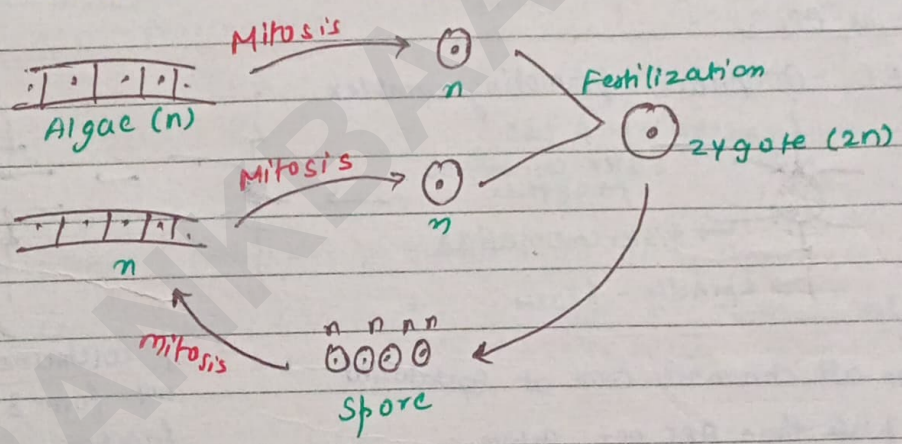 Mitosis
n
Algae (n)
Fertilization
zygote (2n)
Mitosis
n
n
n n n n
mitosis
Spore
RANKBAA